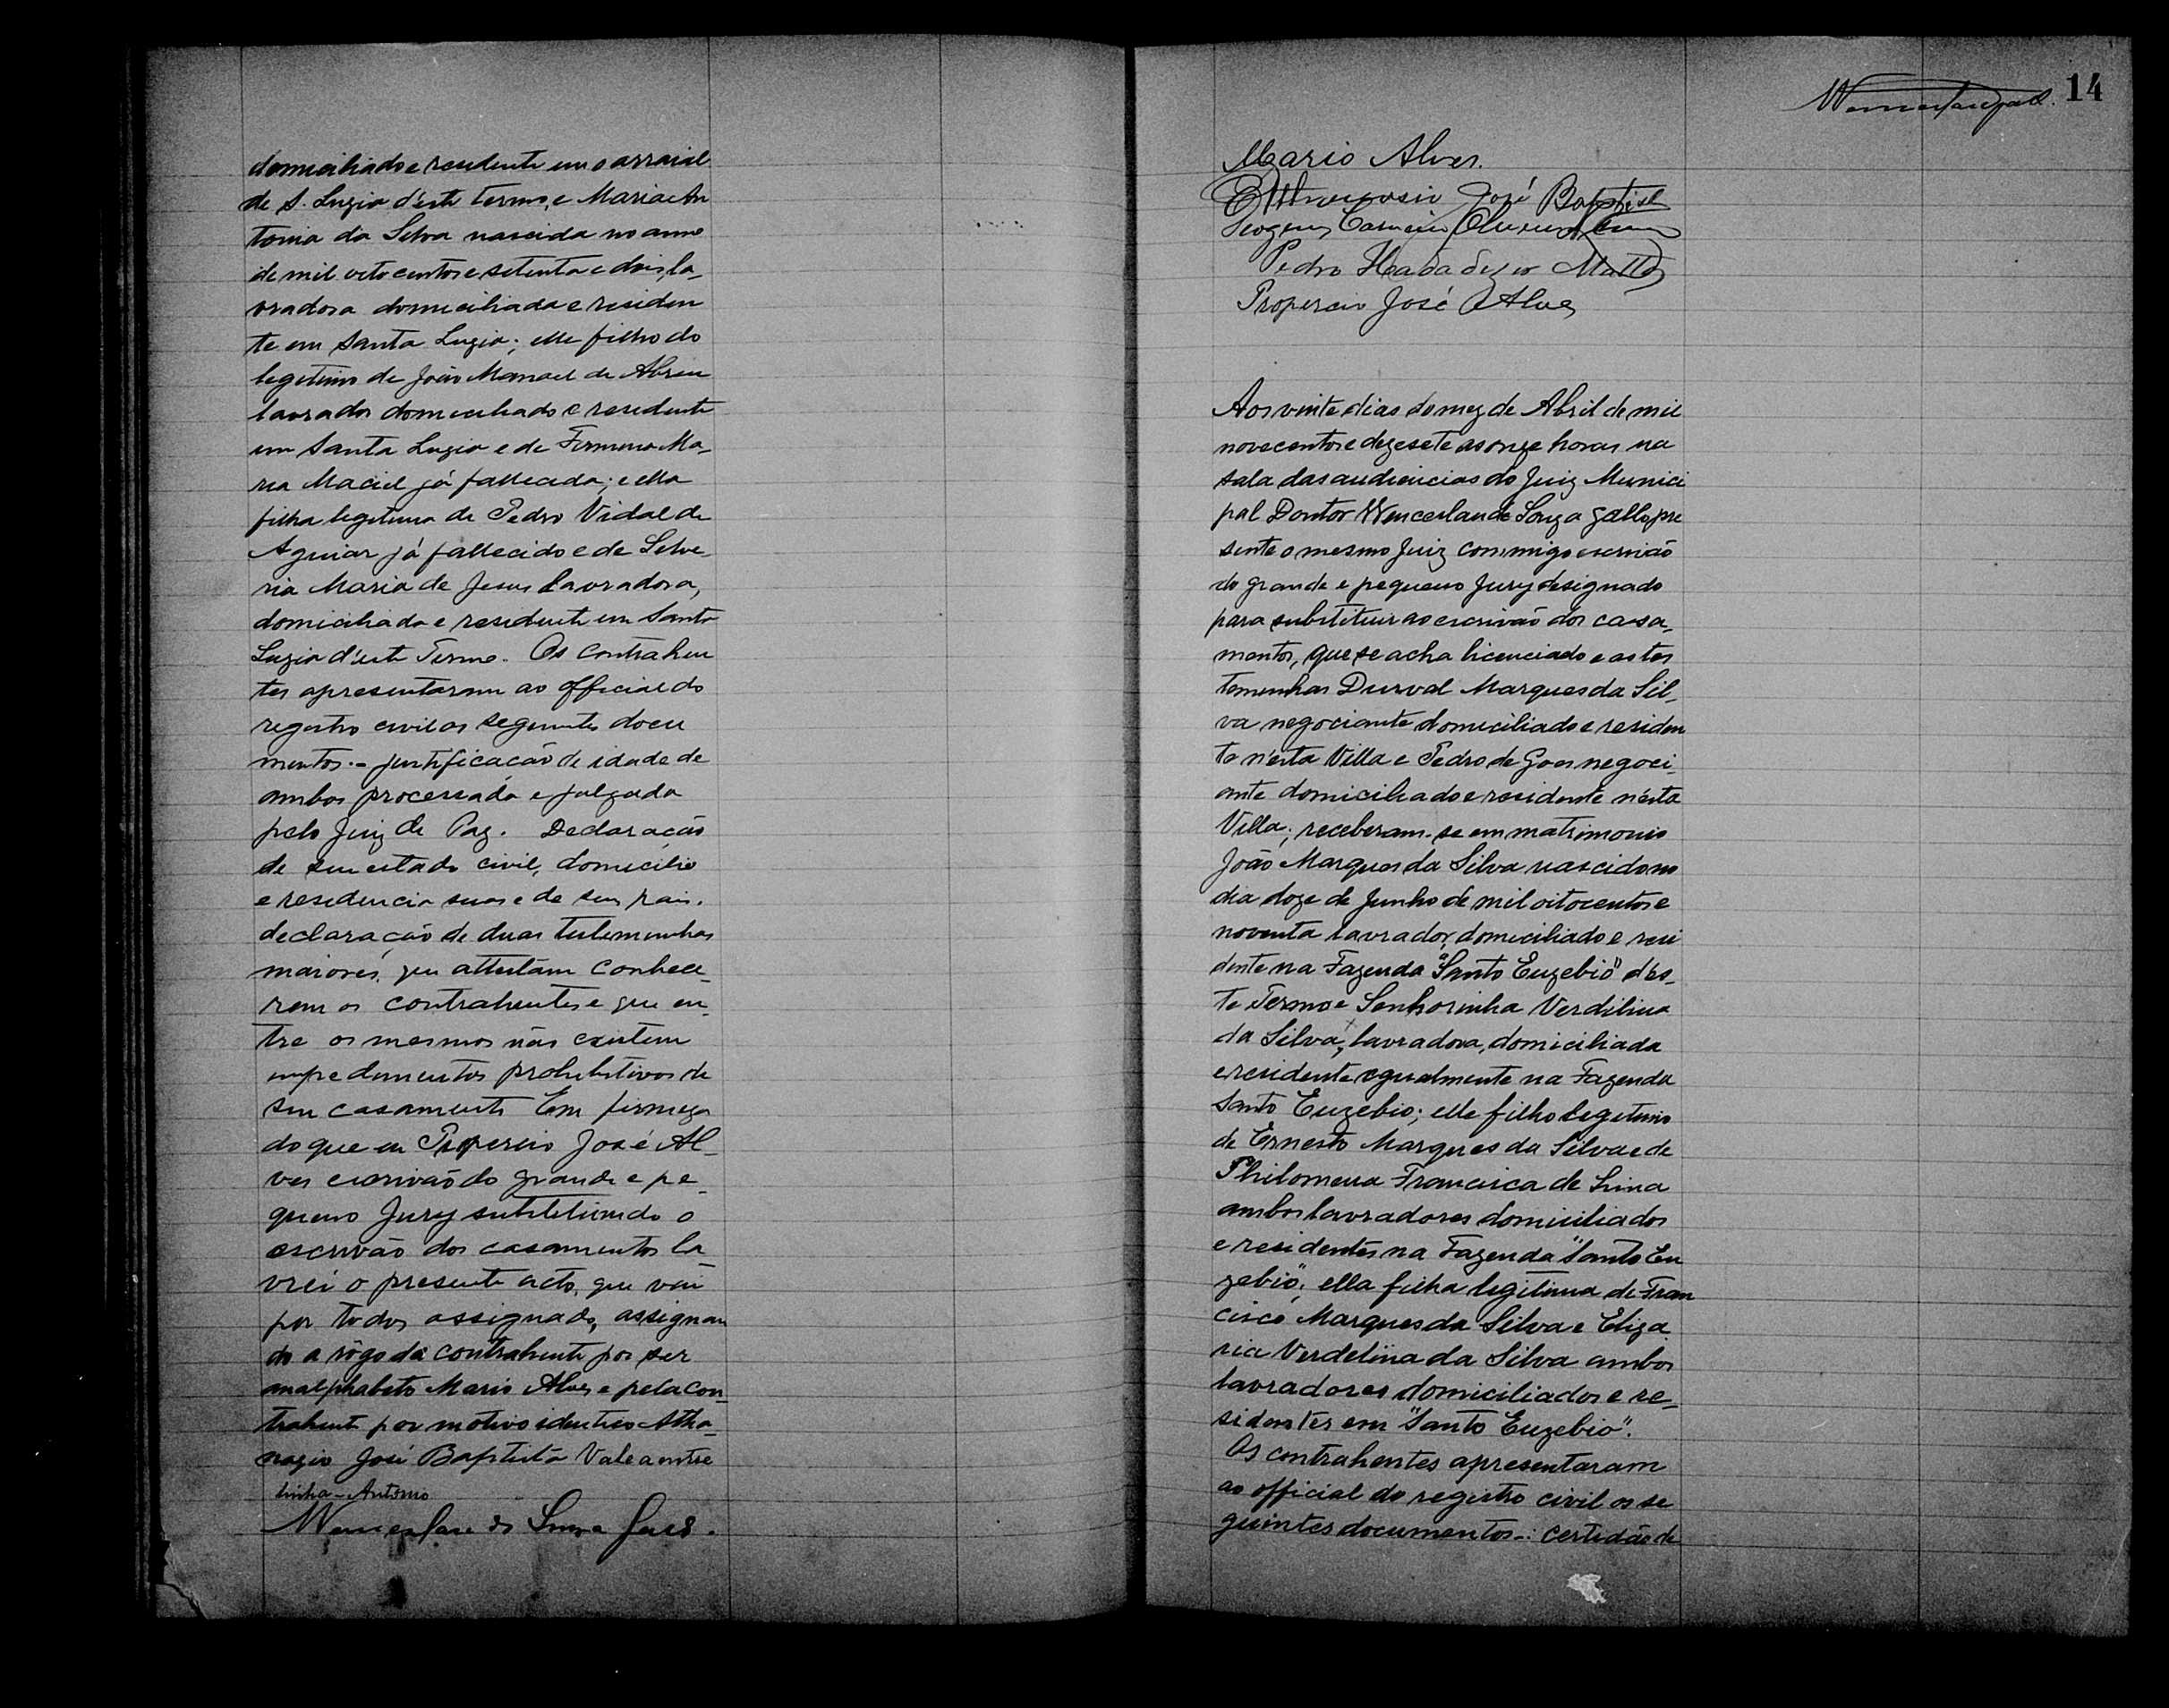 domiciliado e residente em o arraial
de S. Luzia d'este termo, e Maria An
tonia da Silva nascida no anno
de mil oito centos e setenta e dois la_
vradora domiciliada e residen
te em Santa Luzia; elle filho do
legitimo de João Manoel de Abreu
lavrador domiciliado e residente
em Santa Luzia e de Firmina Ma_
ria Maciel já fallecida; e ella
filha legitima de Pedro Vidal de
Aguiar já fallecido e de Silve_
ria Maria de Jesus lavradora,
domiciliada e residente em Santa
Luzia d'este Termo. Os contrahen
tes apresentaram ao official do
registro civil os seguintes docu
mentos:- justificação de idade de
ambos processada e julgada
pelo Juiz de Paz. Declaração
de seu estado civil, domicilio
e residencia suas e de seus pais.
declaração de duas testemunhas
maiores, que attestam conhece_
rem os contrahentes e que en_
tre os mesmos não existem
impedimentos prohibitivos de
seu casamento Em firmeza
do que eu Propercio José Al_
ves escrivão do grande e pe_
queno Jury substituindo o
escrivão dos casamentos la_
vrei o presente acto, que vai
por todos assignado, assignan
do a rôgo do contrahente por ser
analphabeto Mario Alves e pela con_
trahente por motivo identico Atha_
nagio José Baptista Vale a entre
linha - Antonio
de Souza
14
Mario Alves.
José Baptista
Pedro Mattos
Propercio José Alves
Aos vinte dias do mez de Abril de mil
novecentos e dezesete as onze horas na
sala das audiencias do Juiz Munici
pal Doutor Wenceslau de Souza Gallo, pre
sente o mesmo Juiz commigo escrivão
do grande e pequeno Jury designado
para substituir ao escrivão dos casa_
mentos, que se acha licenciado e as tes
temunhas Durval Marques da Sil_
va negociante domiciliado e residen
te n'esta Villa e Pedro de Goes negoci_
ante domiciliado e residente n'esta
Villa; receberam-se em matrimonio
João Marques da Silva nascido no
dia doze de Junho de mil oitocentos e
noventa lavrador, domiciliado e resi
dente na Fazenda "Santo Euzebio" d'es_
te Termo e Senhorinha Verdilina
da Silva, lavradora, domiciliada
e residente egualmente na Fazenda
Santo Euzebio; elle filho legitimo
de Ernesto Marques da Silva e de
Philomena Francisca de Lima
ambos lavradores domiciliados
e residentes na Fazenda "Santo Eu
zebio"; ella filha legitima de Fran
cisco Marques da Silva e Eliza
ria Verdelina da Silva ambos
lavradores domiciliados e re_
sidentes em "Santo Euzebio".
Os contrahentes apresentaram
ao official do registro civil os se
guintes documentos-: certidão de